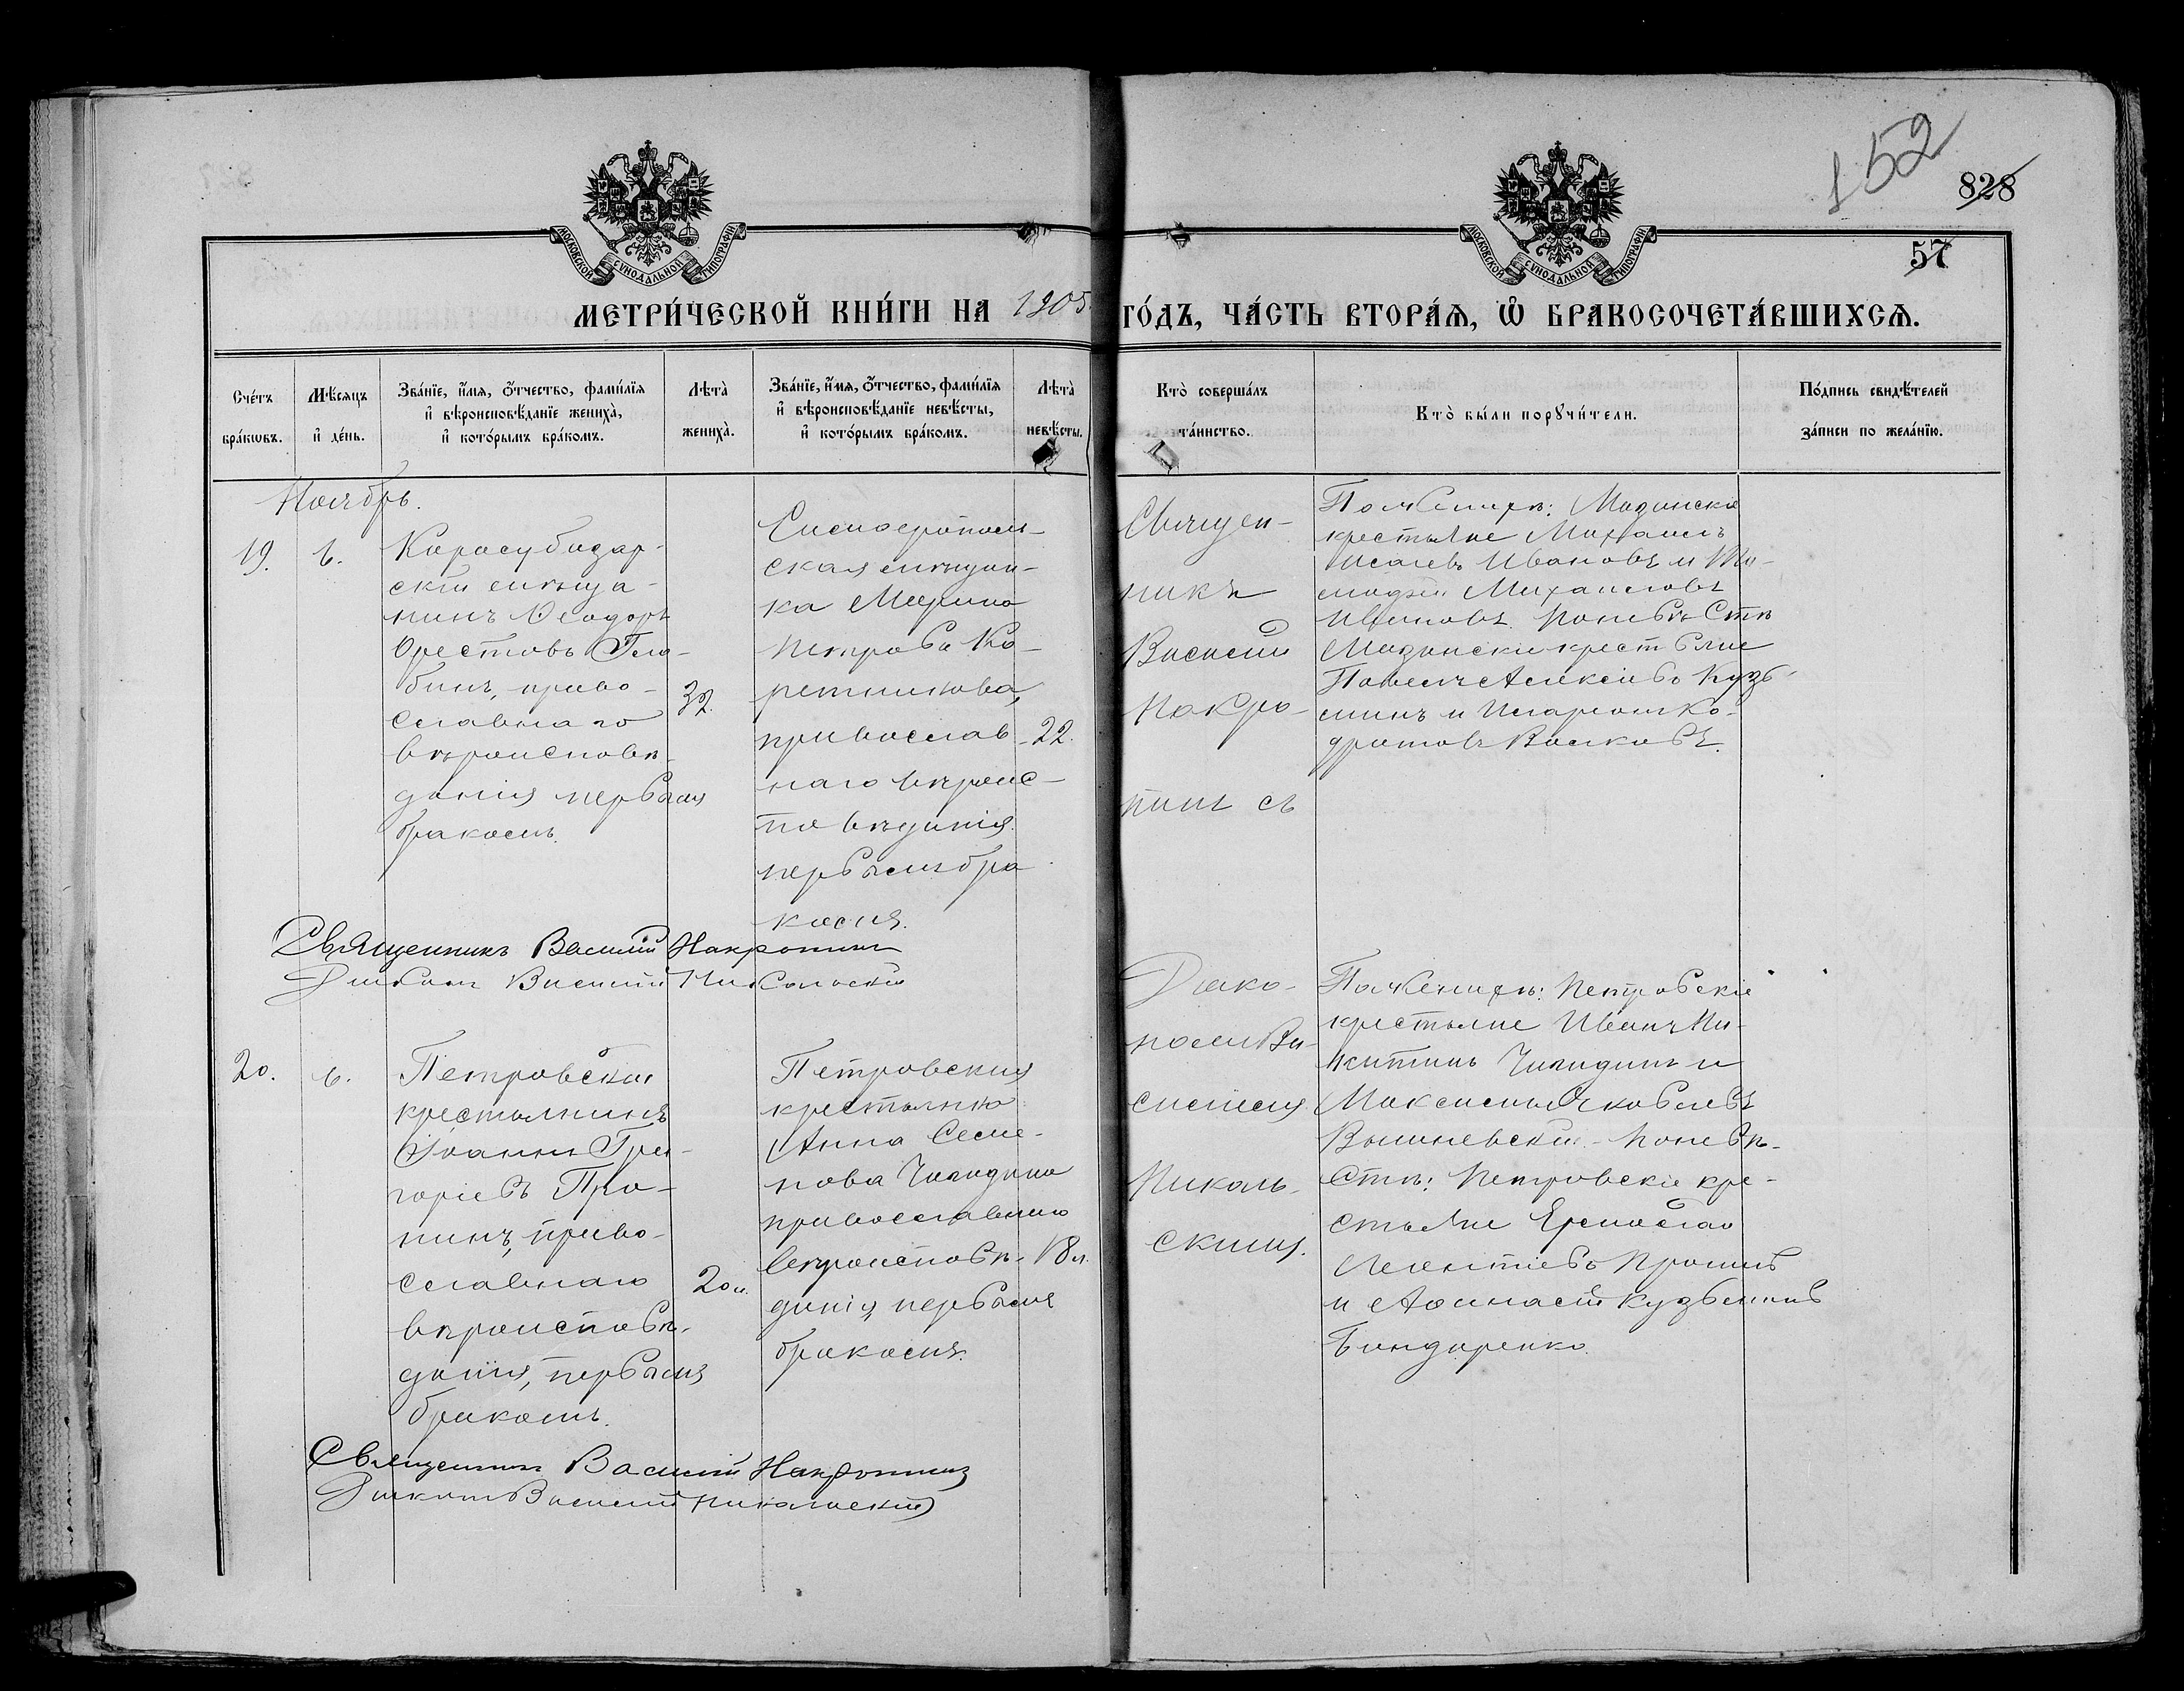 152
828
57
МОСКОВСКОЙ СѴНОДАЛЬНОЙ ТИПОГРАФІИ
МОСКОВСКОЙ СѴНОДАЛЬНОЙ ТИПОГРАФІИ
МЕТРИ́ЧЕСКОЙ КНИ́ГИ НА 1905 ГО́ДЪ, ЧА́СТЬ ВТОРА́Я, Ѡ҆ БРАКОСОЧЕТА́ВШИХСЯ.
Сче́тъ
бра́кѡвъ.
Мѣ́сяцъ
и҆ де́нь.
Зва́нїе, и҆́мя, ѻ҆́тчество, фами́лїя
и҆ вѣроисповѣ́данїе жениха̀,
и҆ кото́рымъ бра́комъ.
Лѣта̀
жениха̀.
Зва́нїе, и҆́мя, ѻ҆́тчество, фами́лїя
и҆ вѣроисповѣ́данїе невѣ́сты,
и҆ кото́рымъ бра́комъ.
Лѣта̀
невѣ́сты.
Кто̀ соверша́лъ
та́инство.
Кто̀ бы́ли порꙋчи́тели.
По́дпись свидѣ́телей
за́писи по жела́нїю.
Ноябрь.
19.
6.
Карасубазар-
скій мѣща-
нинъ Ѳеодоръ
Орестовъ Гло-
бинъ, право-
славнаго
вѣроисповѣ-
данія первымъ
бракомъ.
32.
Симферополь-
ская мѣщан-
ка Марина
Петрова Ко-
ретникова,
православ-
наго вѣроис-
повѣданія
первымъ бра
комъ.
22.
Священ-
никъ
Василій
Накро-
пинъ съ
По женихѣ: Мазанскіе
крестьяне Михаилъ
Исаевъ Ивановъ и
Михаиловъ
Ивановъ. По невѣстѣ
Мазанскіе крестьяне
Павелъ Алексіевъ Кузь-
минъ и Иларіонъ Ко-
дратовъ Волковъ.
Священникъ Василій Накропинъ
Діаконъ Василій Никольскій
20.
6.
Петровскій
крестьянинъ
Іоаннъ Гри-
горіевъ Про-
нинъ, право-
славнаго
вѣроисповѣ-
данія, первымъ
бракомъ.
20 л.
Петровская
крестьянка
Анна Семе-
нова Чигидина
православнаго
вѣроисповѣ-
данія, первымъ
бракомъ.
18 л.
Діако-
номъ Ва-
силіемъ
Николь-
скимъ.
По женихѣ: Петровскіе
крестьяне Иванъ Ни-
китинъ Чигидинъ и
Максимъ Яковлевъ
Вышневскій. По невѣ-
стѣ: Петровскіе кре-
стьяне Ермолай
Леонтіевъ Пронинъ
и Аѳанасій Кузьминъ
Бондаренко.
Священникъ Василій Накропинъ
Діаконъ Василій Никольскій